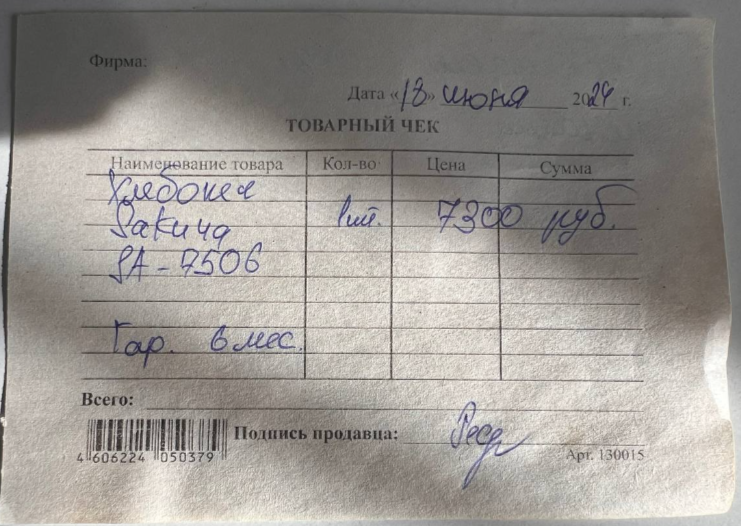 Фирма:
Дата «18» июня 2024 г.
ТОВАРНЫЙ ЧЕК
Наименование товара Кол-во Цена Сумма
Хлебопеч
Sакура 1 шт. 7300 руб.
SA-7506
Гар. 6 мес.
Всего:
Подпись продавца:
4 606224 050379
Арт. 130015